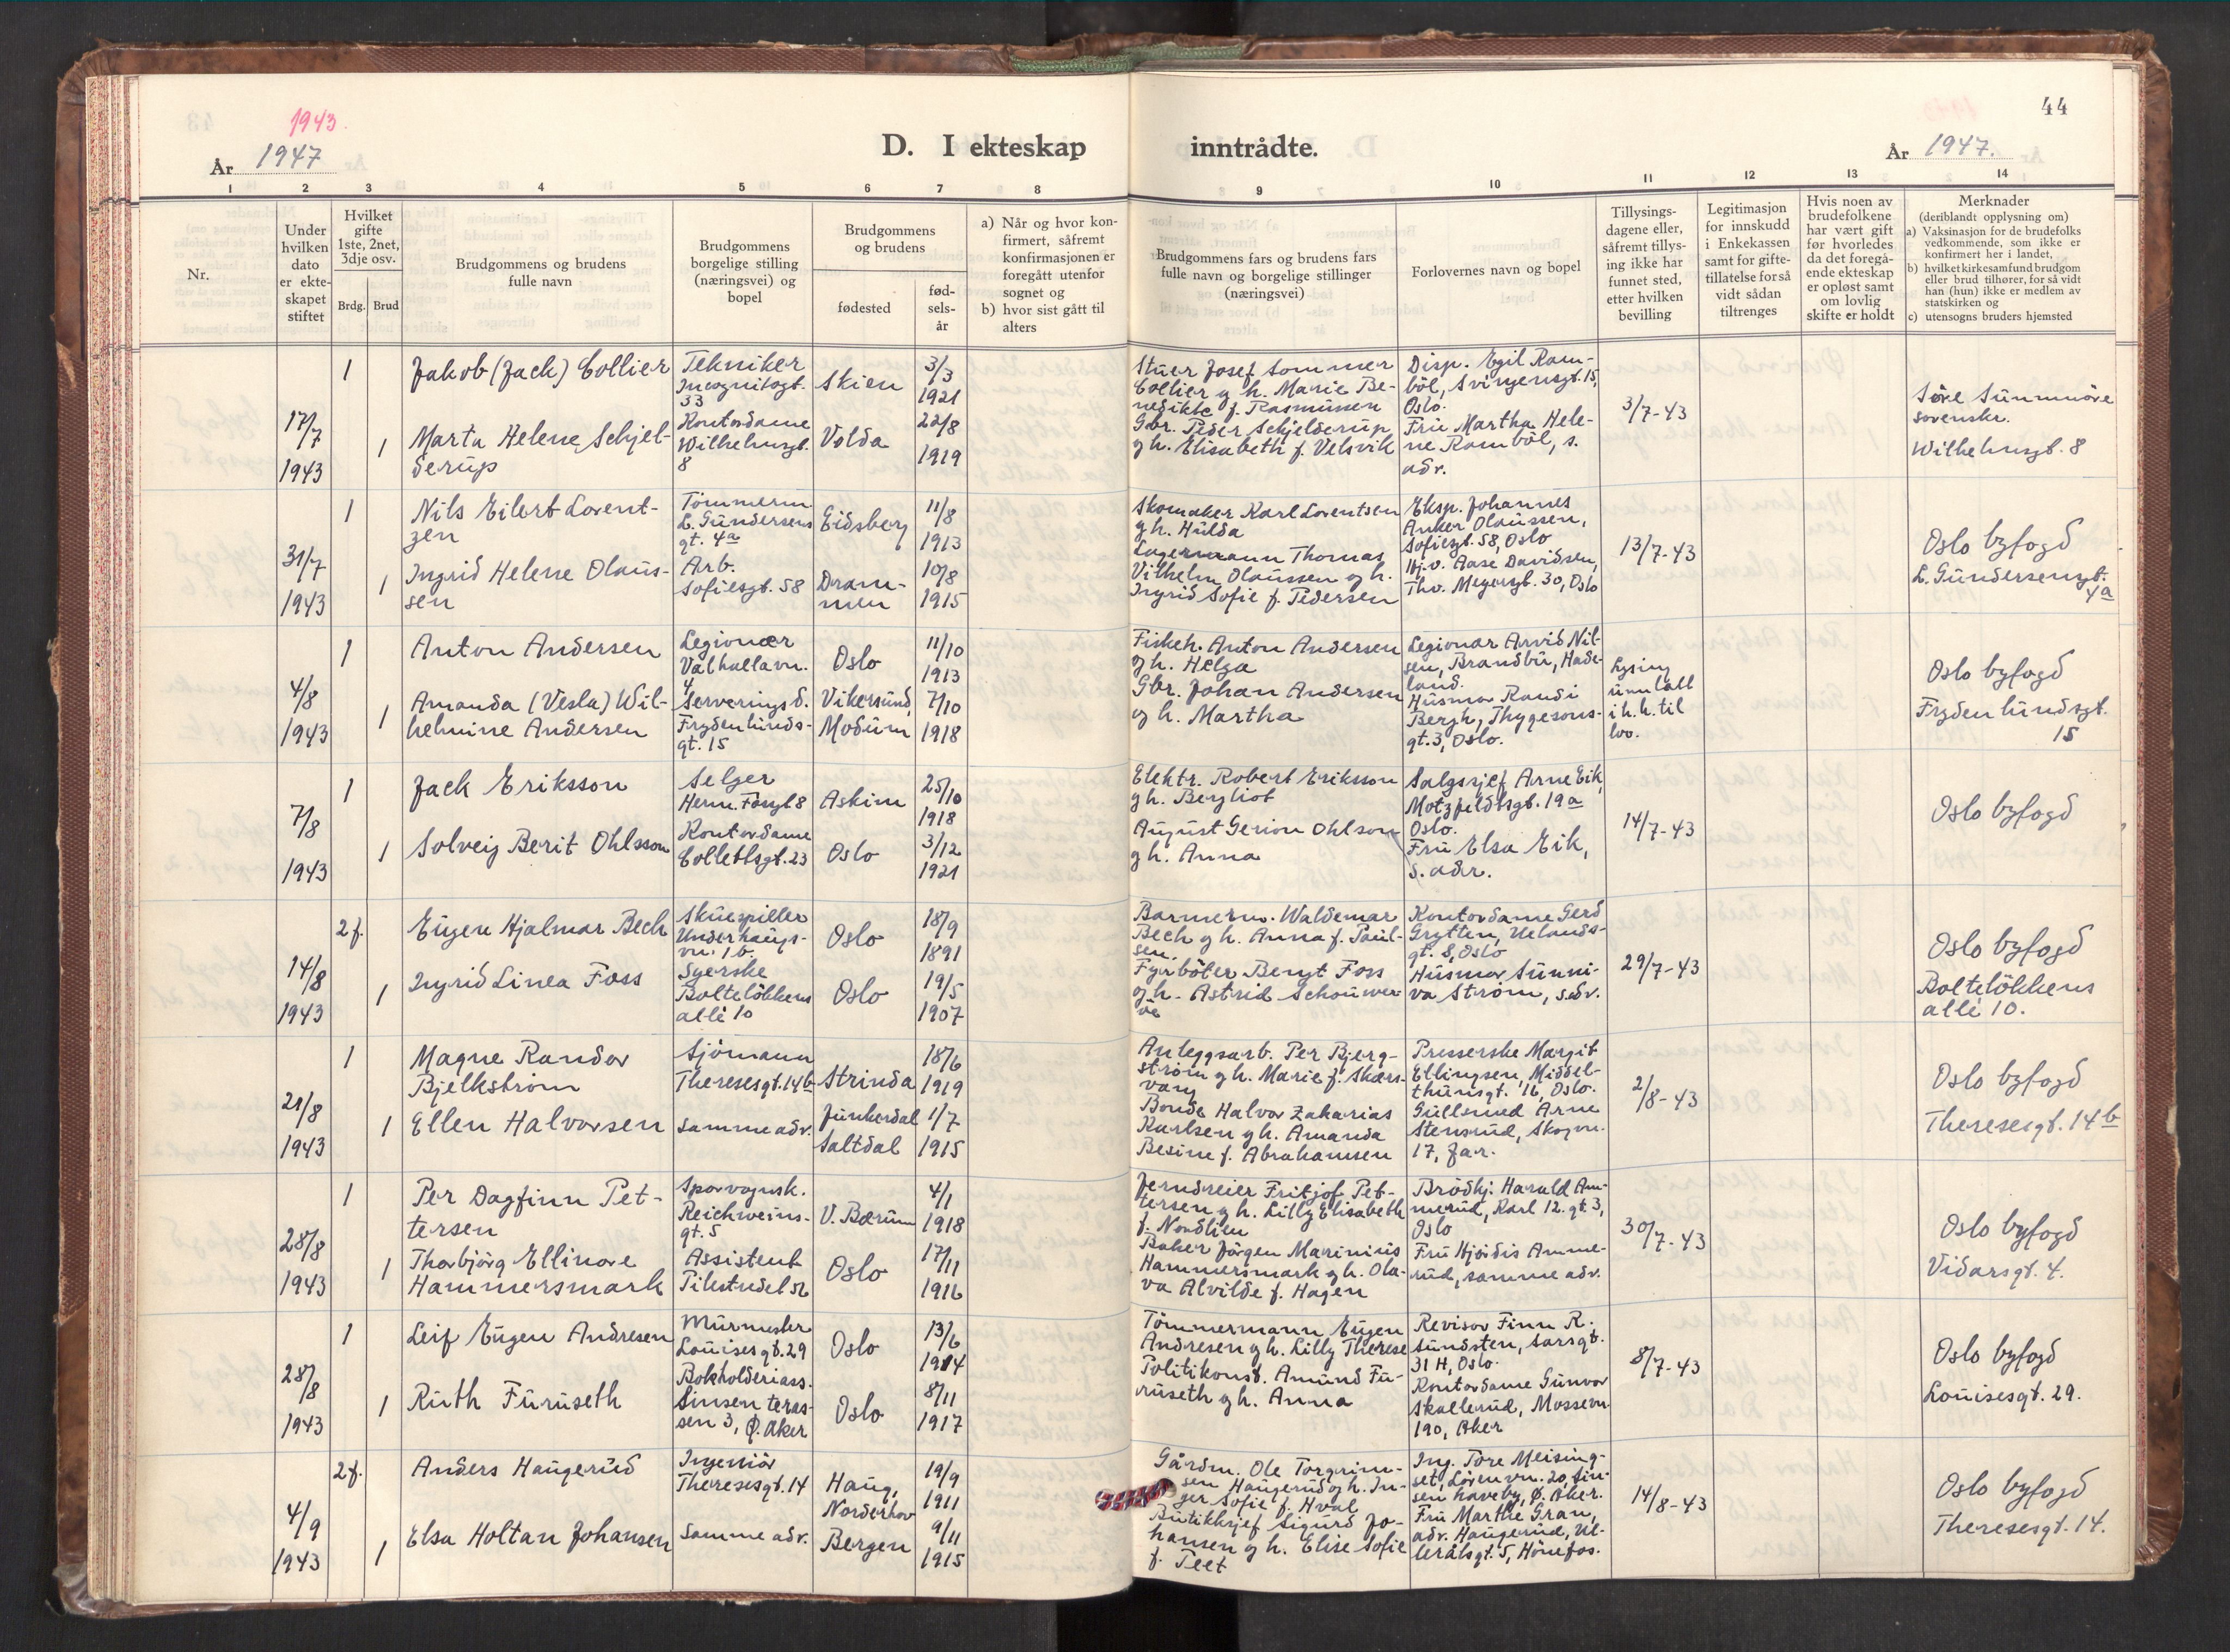 1943.
År 1947
D. I ekteskap inntrådte.
År 1947.
44
1 2 3 4 5 6 7 8 9 10 11 12 13 14
Nr.
Under
hvilken
dato
er ekte-
skapet
stiftet
Hvilket
gifte
1ste, 2net,
3dje osv.
Brdg. Brud
Brudgommens og brudens
fulle navn
Brudgommens
borgelige stilling
(næringsvei) og
bopel
Brudgommens
og brudens
fødested
fød-
sels-
år
a) Når og hvor kon-
firmert, såfremt
konfirmasjonen er
foregått utenfor
sognet og
b) hvor sist gått til
alters
Brudgommens fars og brudens fars
fulle navn og borgelige stillinger
(næringsvei)
Forlovernes navn og bopel
Tillysings-
dagene eller,
såfremt tillys-
ing ikke har
funnet sted,
etter hvilken
bevilling
Legitimasjon
for innskudd
i Enkekassen
samt for gifte-
tillatelse for så
vidt sådan
tiltrenges
Hvis noen av
brudefolkene
har vært gift
før hvorledes
da det foregå-
ende ekteskap
er opløst samt
om lovlig
skifte er holdt
Merknader
(deriblandt opplysning om)
a) Vaksinasjon for de brudefolks
vedkommende, som ikke er
konfirmert her i landet,
b) hvilket kirkesamfund brudgom
eller brud tilhører, for så vidt
han (hun) ikke er medlem av
statskirken og
c) utensogns bruders hjemsted
17/7
1943
1
1
Jakob (Jack) Collier
Marta Helene Schjel-
derup
Tekniker
Incognitogt.
33
Kontordame
Wilhelmsgt.
8
Skien
Volda
3/3
1921
22/8
1919
Stuer Josef Sommer
Collier og h. Marie Be-
nedikte f. Rasmussen
Gbr. Peder Schjelderup
og h. Elisabeth f. Velsvik
Disp. Egil Ram-
böl, Svingensgt. 15,
Oslo.
Fru Martha Hele-
ne Ramböl, s.
adr.
3/7-43
Söre Sunnmöre
sorenskr.
Wilhelmsgt. 8
31/7
1943
1
1
Nils Eilert Lorent-
zen
Ingrid Helene Olaus-
sen
Tömmerm
L. Gundersens
gt. 4a
Arb.
Sofiesgt. 58
Eidsberg
Dram-
men
11/8
1913
10/8
1915
Skomaker Karl Lorentsen
og h. Hulda
Lagermann Thomas
Vilhelm Olaussen og h.
Ingrid Sofie f. Pedersen
Eksp. Johannes
Anker Olaussen,
Sofiesgt. 58, Oslo
Hj.v. Aase Davidsen,
Thv. Meyersgt. 30, Oslo
13/7-43
Oslo byfogd
L. Gundersensgt.
4a
4/8
1943
1
1
Anton Andersen
Amanda (Vesla) Wil-
helmine Andersen
Legionær
Valhallavn.
4
Serveringsd.
Frydenlunds-
gt. 15
Oslo
Vikersund,
Modum
11/10
1913
7/10
1918
Fiskeh. Anton Andersen
og h. Helga
Gbr. Johan Andersen
og h. Martha
Legionær Arvid Nil-
sen, Brandbu, Hade-
land.
Husmor Randi
Bergh, Thygesons-
gt. 3, Oslo.
Lysing
unnlatt
i h.h. til
lov.
Oslo byfogd
Frydenlundsgt.
15
7/8
1943
1
1
Jack Eriksson
Solveig Berit Ohlsson
Selger
Herm. Fossgt 8
Kontordame
Collettsgt. 23
Askim
Oslo
25/10
1918
3/12
1921
Elektr. Robert Eriksson
og h. Bergliot
August Gerion Ohlson
og h. Anna
Salgssjef Arne Eik,
Motzfeldtsgt. 19a
Oslo.
Fru Elsa Eik,
s. adr.
14/7-43
Oslo byfogd
14/8
1943
2 f.
1
Eugen Hjalmar Bech
Ingrid Linea Foss
Skuespiller
Underhaugs-
vn. 1 b.
Syerske
Boltelökkens
allé 10
Oslo
Oslo
18/9
1891
19/5
1907
Barmerm. Waldemar
Bech og h. Anna f. Paul-
sen.
Fyrböter Bengt Foss
og h. Astrid Schouwer
ve
Kontordame Gerd
Grytten, Uelands-
gt. 8, Oslo
Husmor Sunni-
va Ström, s.adr.
29/7-43
Oslo byfogd
Boltelökkens
allé 10.
21/8
1943
1
1
Magne Randor
Bjelkström
Ellen Halvorsen
Sjömann
Theresesgt. 14b
samme adr.
Strinda
Junkerdal
Saltdal
18/6
1919
1/7
1915
Anleggsarb. Per Bjerg-
ström og h. Marie f. Skærs-
vang
Bonde Halvor Zakarias
Karlsen og h. Amanda
Besine f. Abrahamsen
Presserske Margit
Ellingsen, Middel-
thunsgt. 16, Oslo.
Gullsmed Arne
Stensrud, Skogvn.
17, Jar.
2/8-43
Oslo byfogd
Theresesgt. 14b
28/8
1943
1
1
Per Dagfinn Pet-
tersen
Thorbjörg Ellinore
Hammersmark
Sporvognsk.
Reichweins-
gt. 5
Assistent
Pilestredet 56
V. Bærum
Oslo
4/1
1918
17/11
1916
Jerndreier Fritjof Pet-
tersen og h. Lilly Elisabeth
f. Nordlien
Baker Jörgen Marinius
Hammersmark og h. Ola-
va Alvilde f. Hagen
Brödkj. Harald Am-
merud, Karl 12. gt. 3,
Oslo
Fru Hjördis Amme-
rud, samme adr.
30/7-43
Oslo byfogd
Vidarsgt. 4.
28/8
1943
1
1
Leif Eugen Andresen
Ruth Furuseth
Murmester
Louisesgt. 29
Bokholderiass.
Sinsen teras-
sen 3, Ø. Aker
Oslo
Oslo
13/6
1914
8/11
1917
Tömmermann Eugen
Andresen og h. Lilly Therese
Politikonst. Amund Fu-
ruseth og h. Anna
Revisor Finn R.
Sundsten, Sarsgt.
31 H, Oslo.
Kontordame Gunvor
Skallerud, Mossevn
190, Aker
8/7-43
Oslo byfogd
Louisesgt. 29.
4/9
1943
2 f.
1
Anders Haugerud
Elsa Holtan Johansen
Ingeniör
Theresesgt. 14
samme adr.
Haug,
Norderhov
Bergen
19/9
1911
9/11
1915
Gårdm. Ole Torgrim-
sen Haugerud og h. In-
ger Sofie f. Hval
Butikksjef Sigurd Jo-
hansen og h. Elise Sofie
f. Teet
Ing. Tore Meising-
set, Lörenvn. 20, Sin-
sen haveby, Ø. Aker.
Fru Marthe Gran,
adr. Haugerud, Ul-
lerålsgt. 5, Hönefos.
14/8-43
Oslo byfogd
Theresesgt. 14.